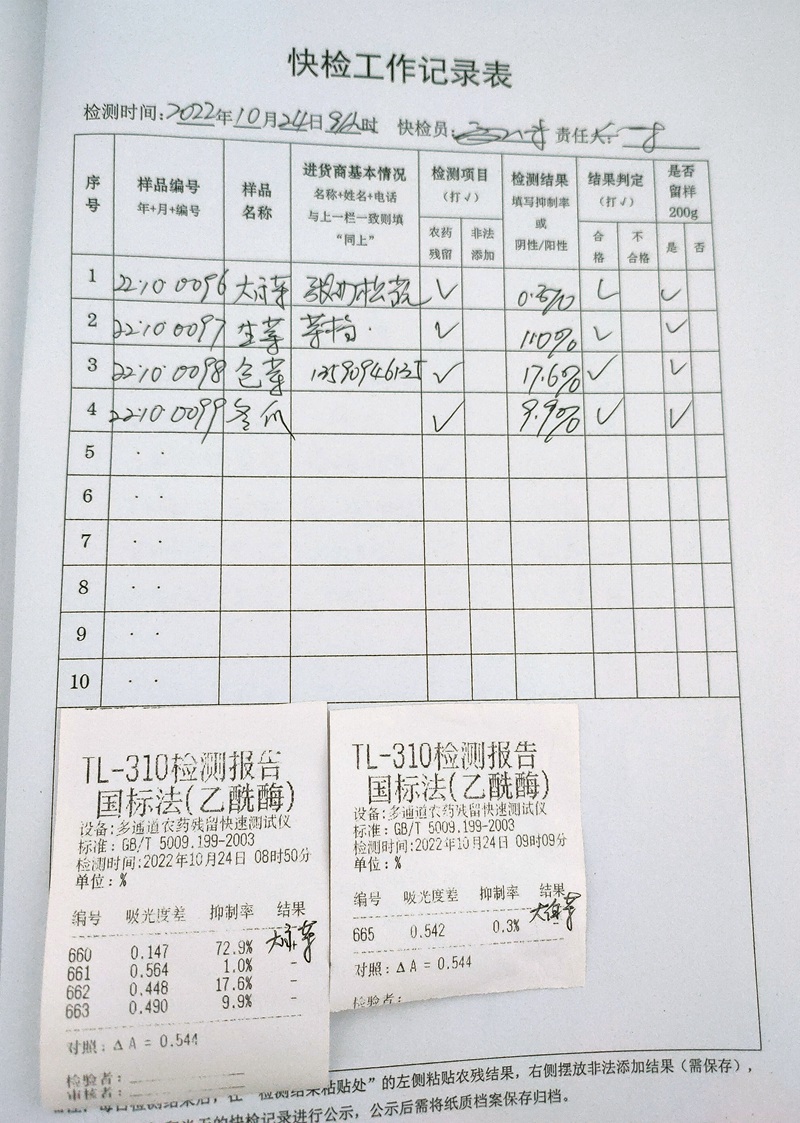 快检工作记录表
检测时间:2022年10月24日 时 快检员: 责任人:
序号 样品编号 年+月+编号 样品名称 进货商基本情况 名称+姓名+电话 与上一栏一致则填“同上” 检测项目 (打√) 检测结果 填写抑制率 或 阴性/阳性 结果判定 (打√) 是否留样 200g
农药残留 非法添加 合格 不合格 是 否
1 22·10·0096 √ 0.3% √ √
2 22·10·0097 生菜 菜档. √ 1.0% √ √
3 22·10·0098 包菜 13590946135 √ 17.6% √ √
4 22·10·0099 冬瓜 √ 9.9% √ √
5 · ·
6 · ·
7 · ·
8 · ·
9 · ·
10 · ·
TL-310检测报告
国标法(乙酰酶)
设备:多通道农药残留快速测试仪
标准: GB/T 5009.199-2003
检测时间:2022年10月24日 08时50分
单位: %
编号 吸光度差 抑制率 结果
660 0.147 72.9%
661 0.564 1.0% -
662 0.448 17.6% -
663 0.490 9.9% -
对照: Δ A = 0.544
检验者:
审核者:
TL-310检测报告
国标法(乙酰酶)
设备:多通道农药残留快速测试仪
标准: GB/T 5009.199-2003
检测时间:2022年10月24日 09时09分
单位: %
编号 吸光度差 抑制率 结果
665 0.542 0.3% -
对照: Δ A = 0.544
检验者:
每日检测结果后, 在“检测结果粘贴处”的左侧粘贴农残结果，右侧摆放非法添加结果（需保存），
的快检记录进行公示，公示后需将纸质档案保存归档。